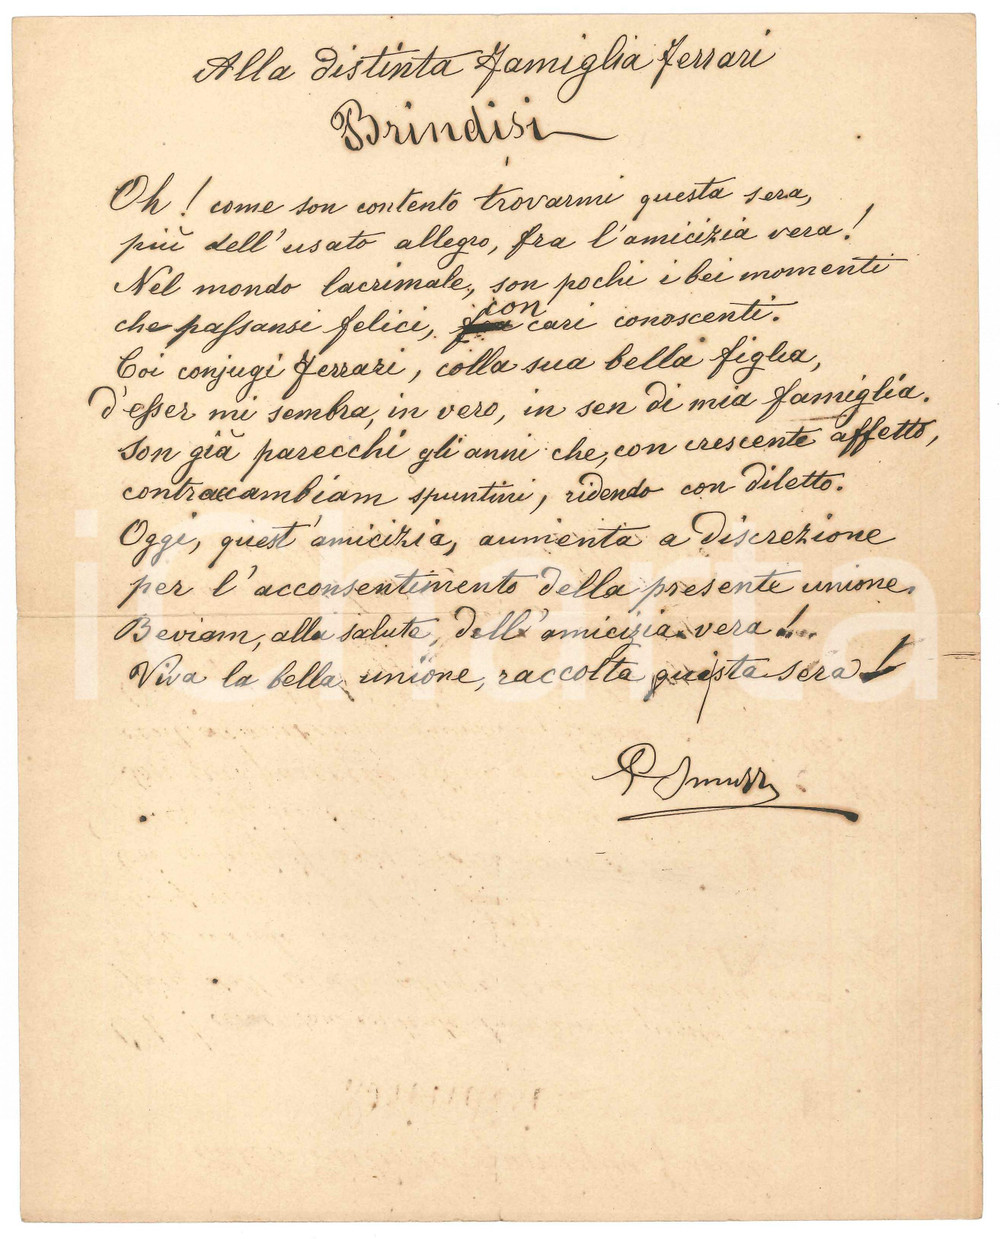 Alla distinta Famiglia Ferrari
Brindisi
Oh! come son contento trovarmi questa sera,
più dell'usato allegro, fra l'amicizia vera!
Nel mondo lacrimale, son pochi i bei momenti
che passansi felici, con cari conoscenti.
Coi conjugi Ferrari, colla sua bella figlia,
d'esser mi sembra, in vero, in sen di mia famiglia.
Son già parecchi gli anni che, con crescente affetto,
contraccambiam spuntini, ridendo con diletto.
Oggi, quest'amicizia, aumenta a discrezione
per l'acconsentimento della presente unione.
Beviam, alla salute, dell'amicizia vera!..
Viva la bella unione, raccolta questa sera!
iCharta